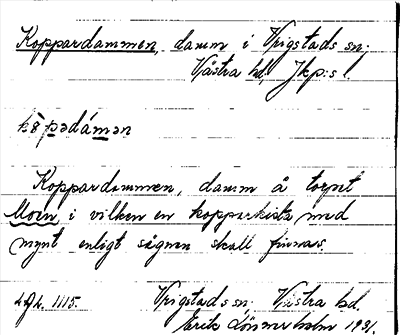 Koppardammen, damm i Vrigstads sn;
Västra hd, Jkp:s l.
Koppardammen, damm å torpet
Moen i vilken en kopparkista med
mynt enligt sägnen skall finnas.
1115. Vrigstads sn; Västra hd.
Erik Lönnerholm 1931.